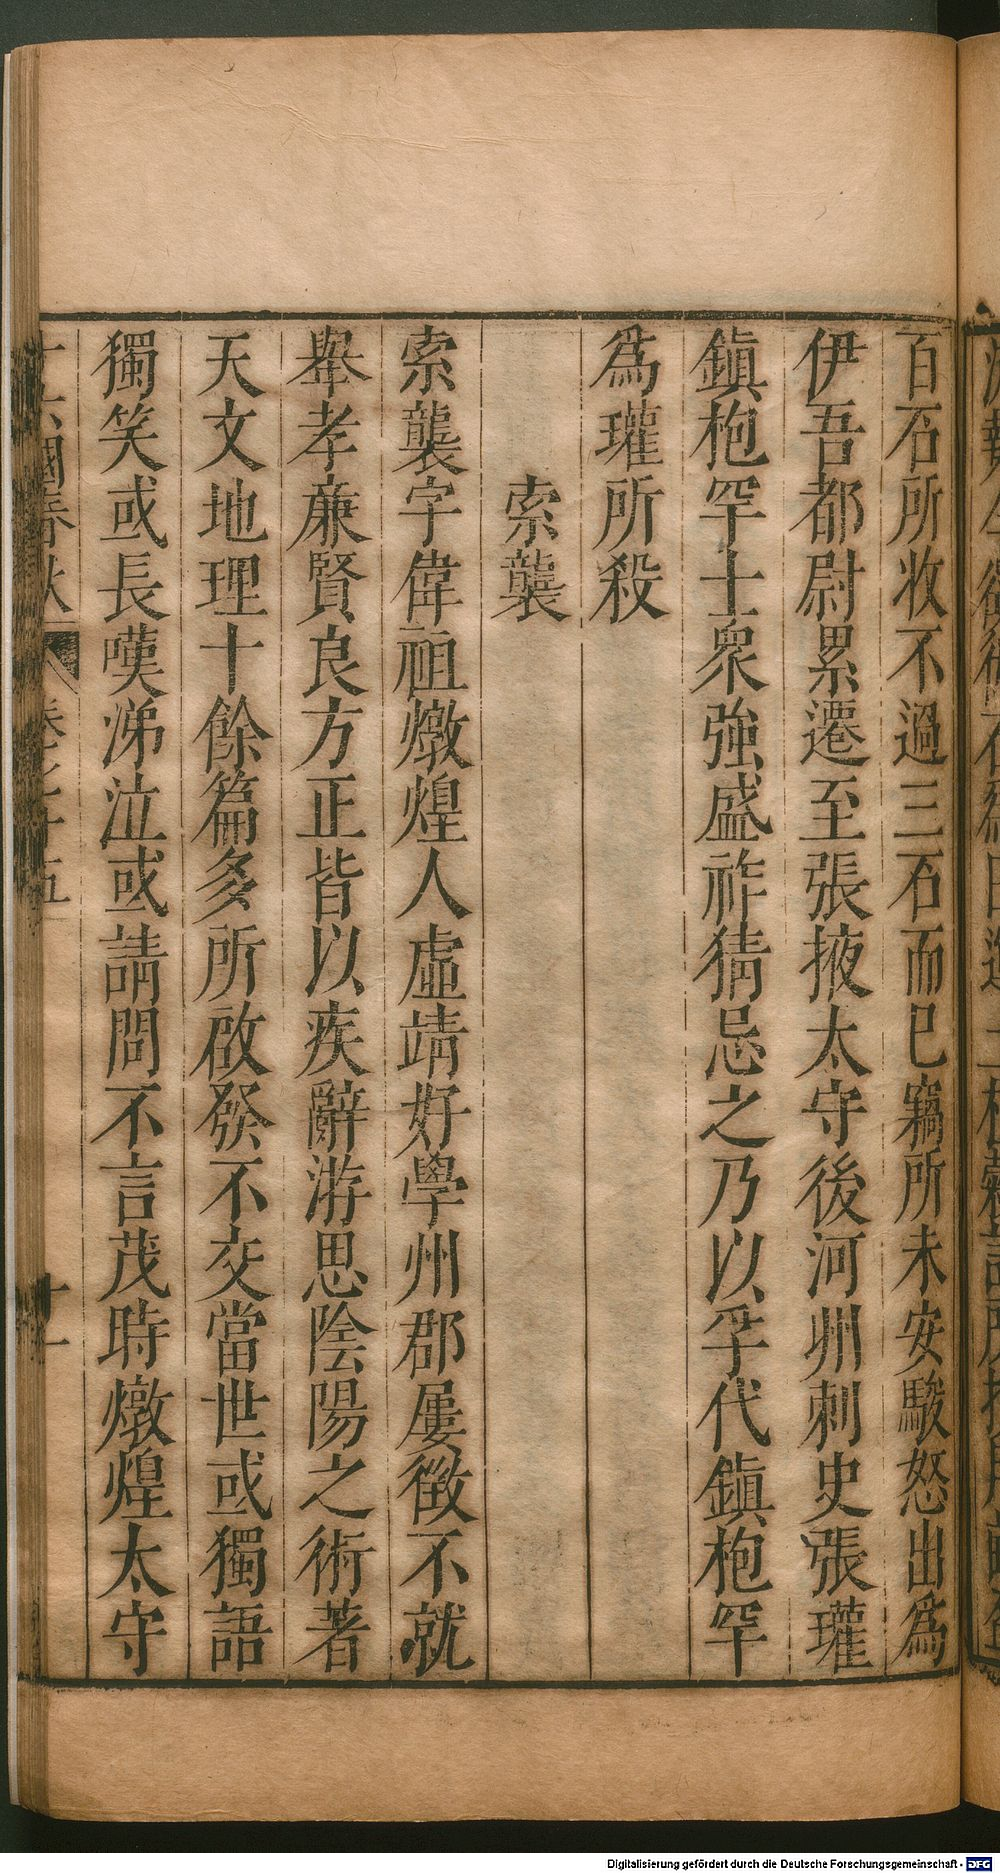 百石所收不過三石而已竊所未安駿怒出為
伊吾都尉累遷至張掖太守後河州刺史張瓘
鎮枹罕士衆強盛祚猜忌之乃以孚代鎮枹罕
為瓘所殺
索襲
索襲字偉祖燉煌人虛靖好學州郡屢徵不就
舉孝廉賢良方正皆以疾辭游思陰陽之術著
天文地理十餘篇多所啟發不交當世或獨語
獨笑或長嘆涕泣或請問不言茂時燉煌太守
十六國春秋 卷七十五 十一
Digitalisierung gefördert durch die Deutsche Forschungsgemeinschaft - DFG